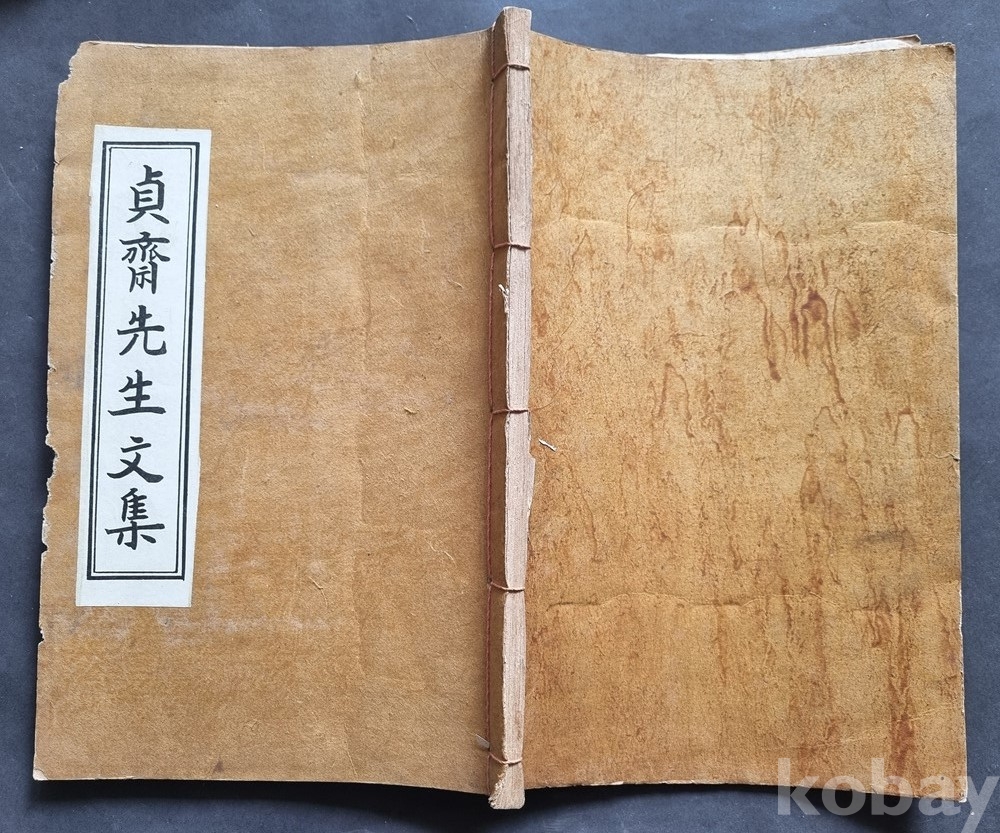 貞齋先生文集
kobay